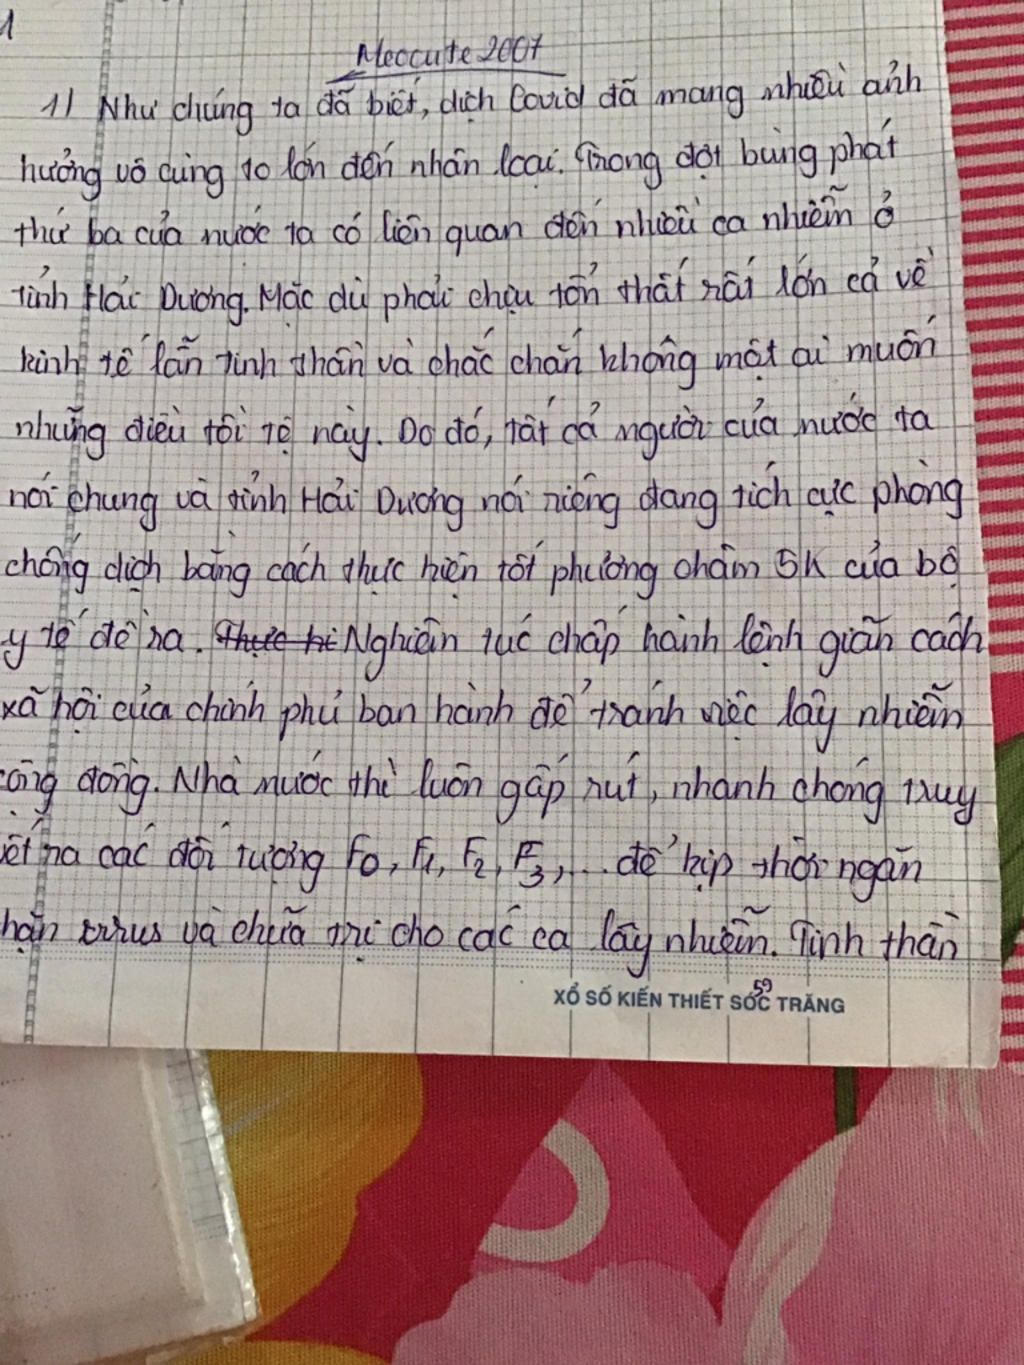 1
Meocute2007
1) Như chúng ta đã biết, dịch Covid đã mang nhiều ảnh
hưởng vô cùng to lớn đến nhân loại. Trong đợt bùng phát
thứ ba của nước ta có liên quan đến nhiều ca nhiễm ở
tỉnh Hải Dương. Mặc dù phải chịu tổn thất rất lớn cả về
kinh tế lẫn tinh thần và chắc chắn không một ai muốn
những điều tồi tệ này. Do đó, tất cả người của nước ta
nói chung và tỉnh Hải Dương nói riêng đang tích cực phòng
chống dịch bằng cách thực hiện tốt phương châm 5K của bộ
y tế đề ra. Thực hi Nghiêm túc chấp hành lệnh giãn cách
xã hội của chính phủ ban hành để tránh việc lây nhiễm
cộng đồng. Nhà nước thì luôn gấp rút, nhanh chóng truy
ết ra các đối tượng F0, F1, F2, F3,... để kịp thời ngăn
hặn virus và chữa trị cho các ca lây nhiễm. Tinh thần
59
XỔ SỐ KIẾN THIẾT SÓC TRĂNG